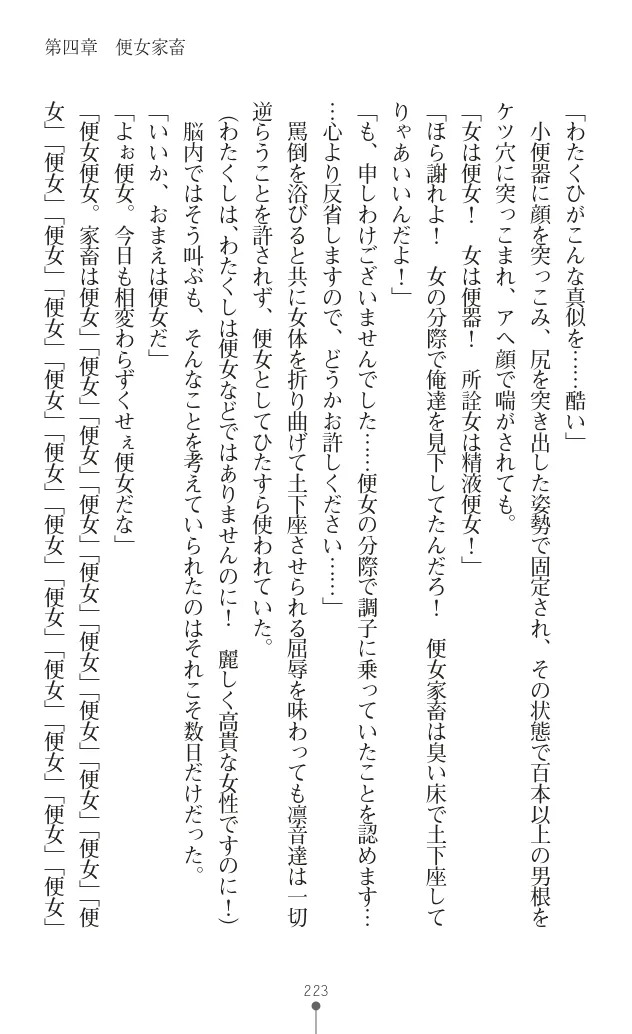 第四章　便女家畜
「わたくひがこんな真似を……酷い」
　小便器に顔を突っこみ、尻を突き出した姿勢で固定され、その状態で百本以上の男根を
ケツ穴に突っこまれ、アヘ顔で喘がされても。
「女は便女！　女は便器！　所詮女は精液便女！」
「ほら謝れよ！　女の分際で俺達を見下してたんだろ！　便女家畜は臭い床で土下座して
りゃあいいんだよ！」
「も、申しわけございませんでした……便女の分際で調子に乗っていたことを認めます…
…心より反省しますので、どうかお許しください……」
　罵倒を浴びると共に女体を折り曲げて土下座させられる屈辱を味わっても凛音達は一切
逆らうことを許されず、便女としてひたすら使われていた。
（わたくしは、わたくしは便女などではありませんのに！　麗しく高貴な女性ですのに！）
　脳内ではそう叫ぶも、そんなことを考えていられたのはそれこそ数日だけだった。
「いいか、おまえは便女だ」
「よぉ便女。今日も相変わらずくせぇ便女だな」
「便女便女。家畜は便女」「便女」「便女」「便女」「便女」「便女」「便女」「便女」「便
女」「便女」「便女」「便女」「便女」「便女」「便女」「便女」「便女」「便女」「便女」
223